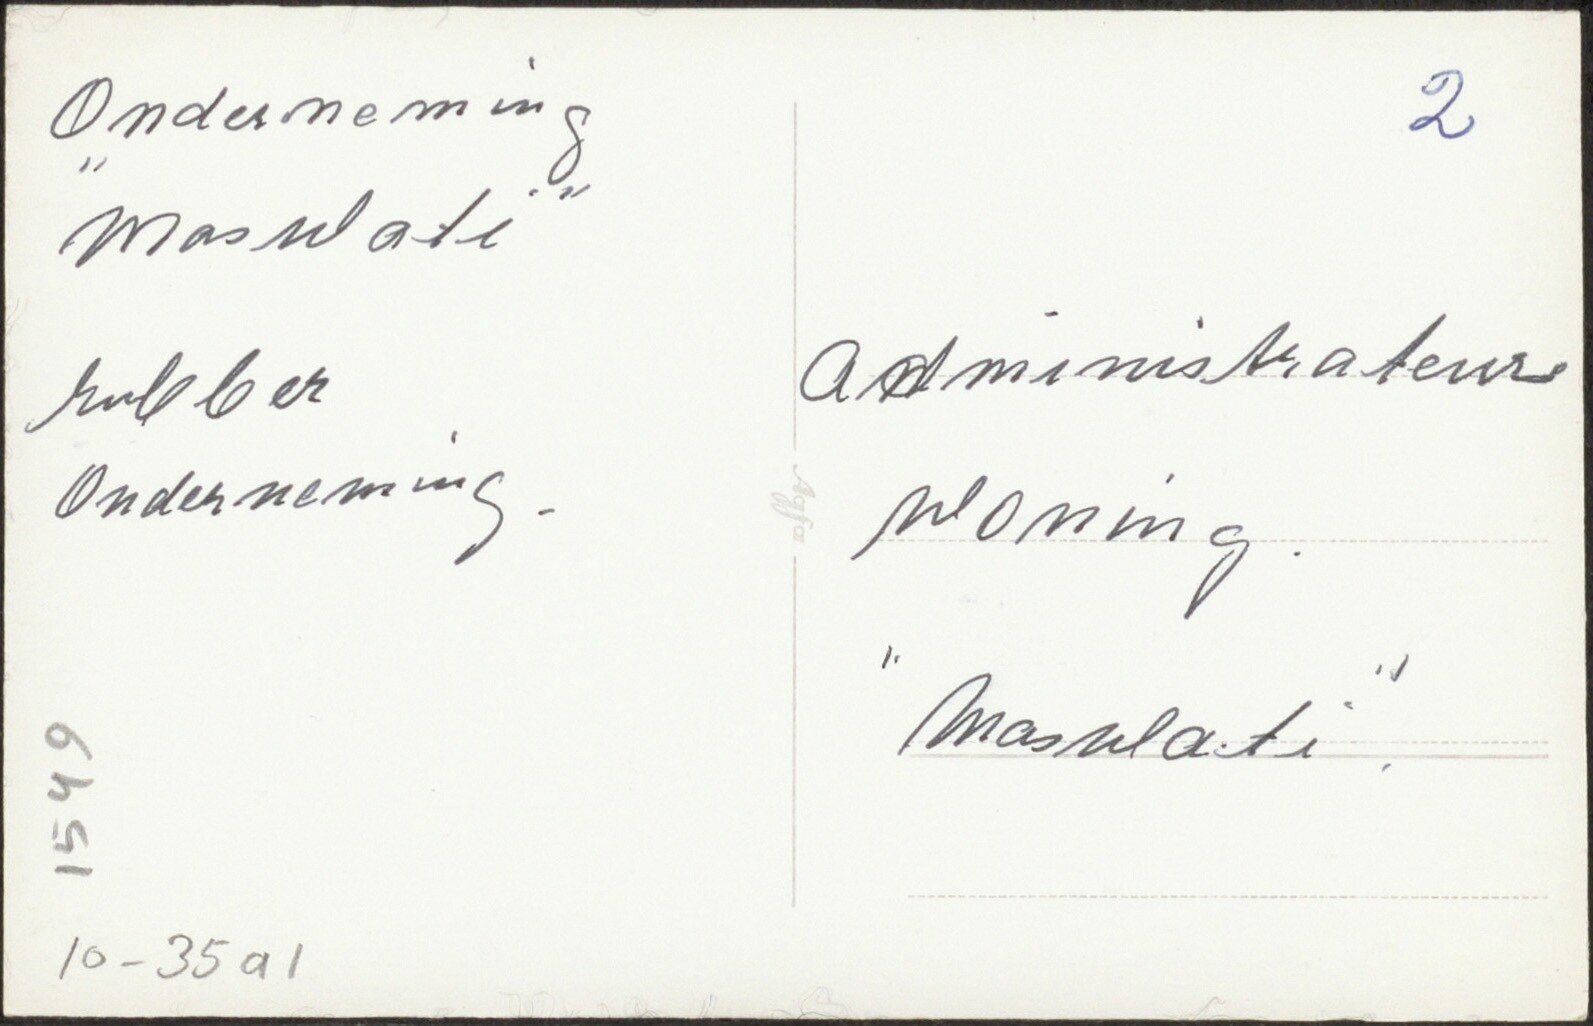 Onderneming
"Maswati"
rubber
Onderneming.
1549
10-35a1
2
Administrateurs
Woning.
"Maswlati".
Agfa